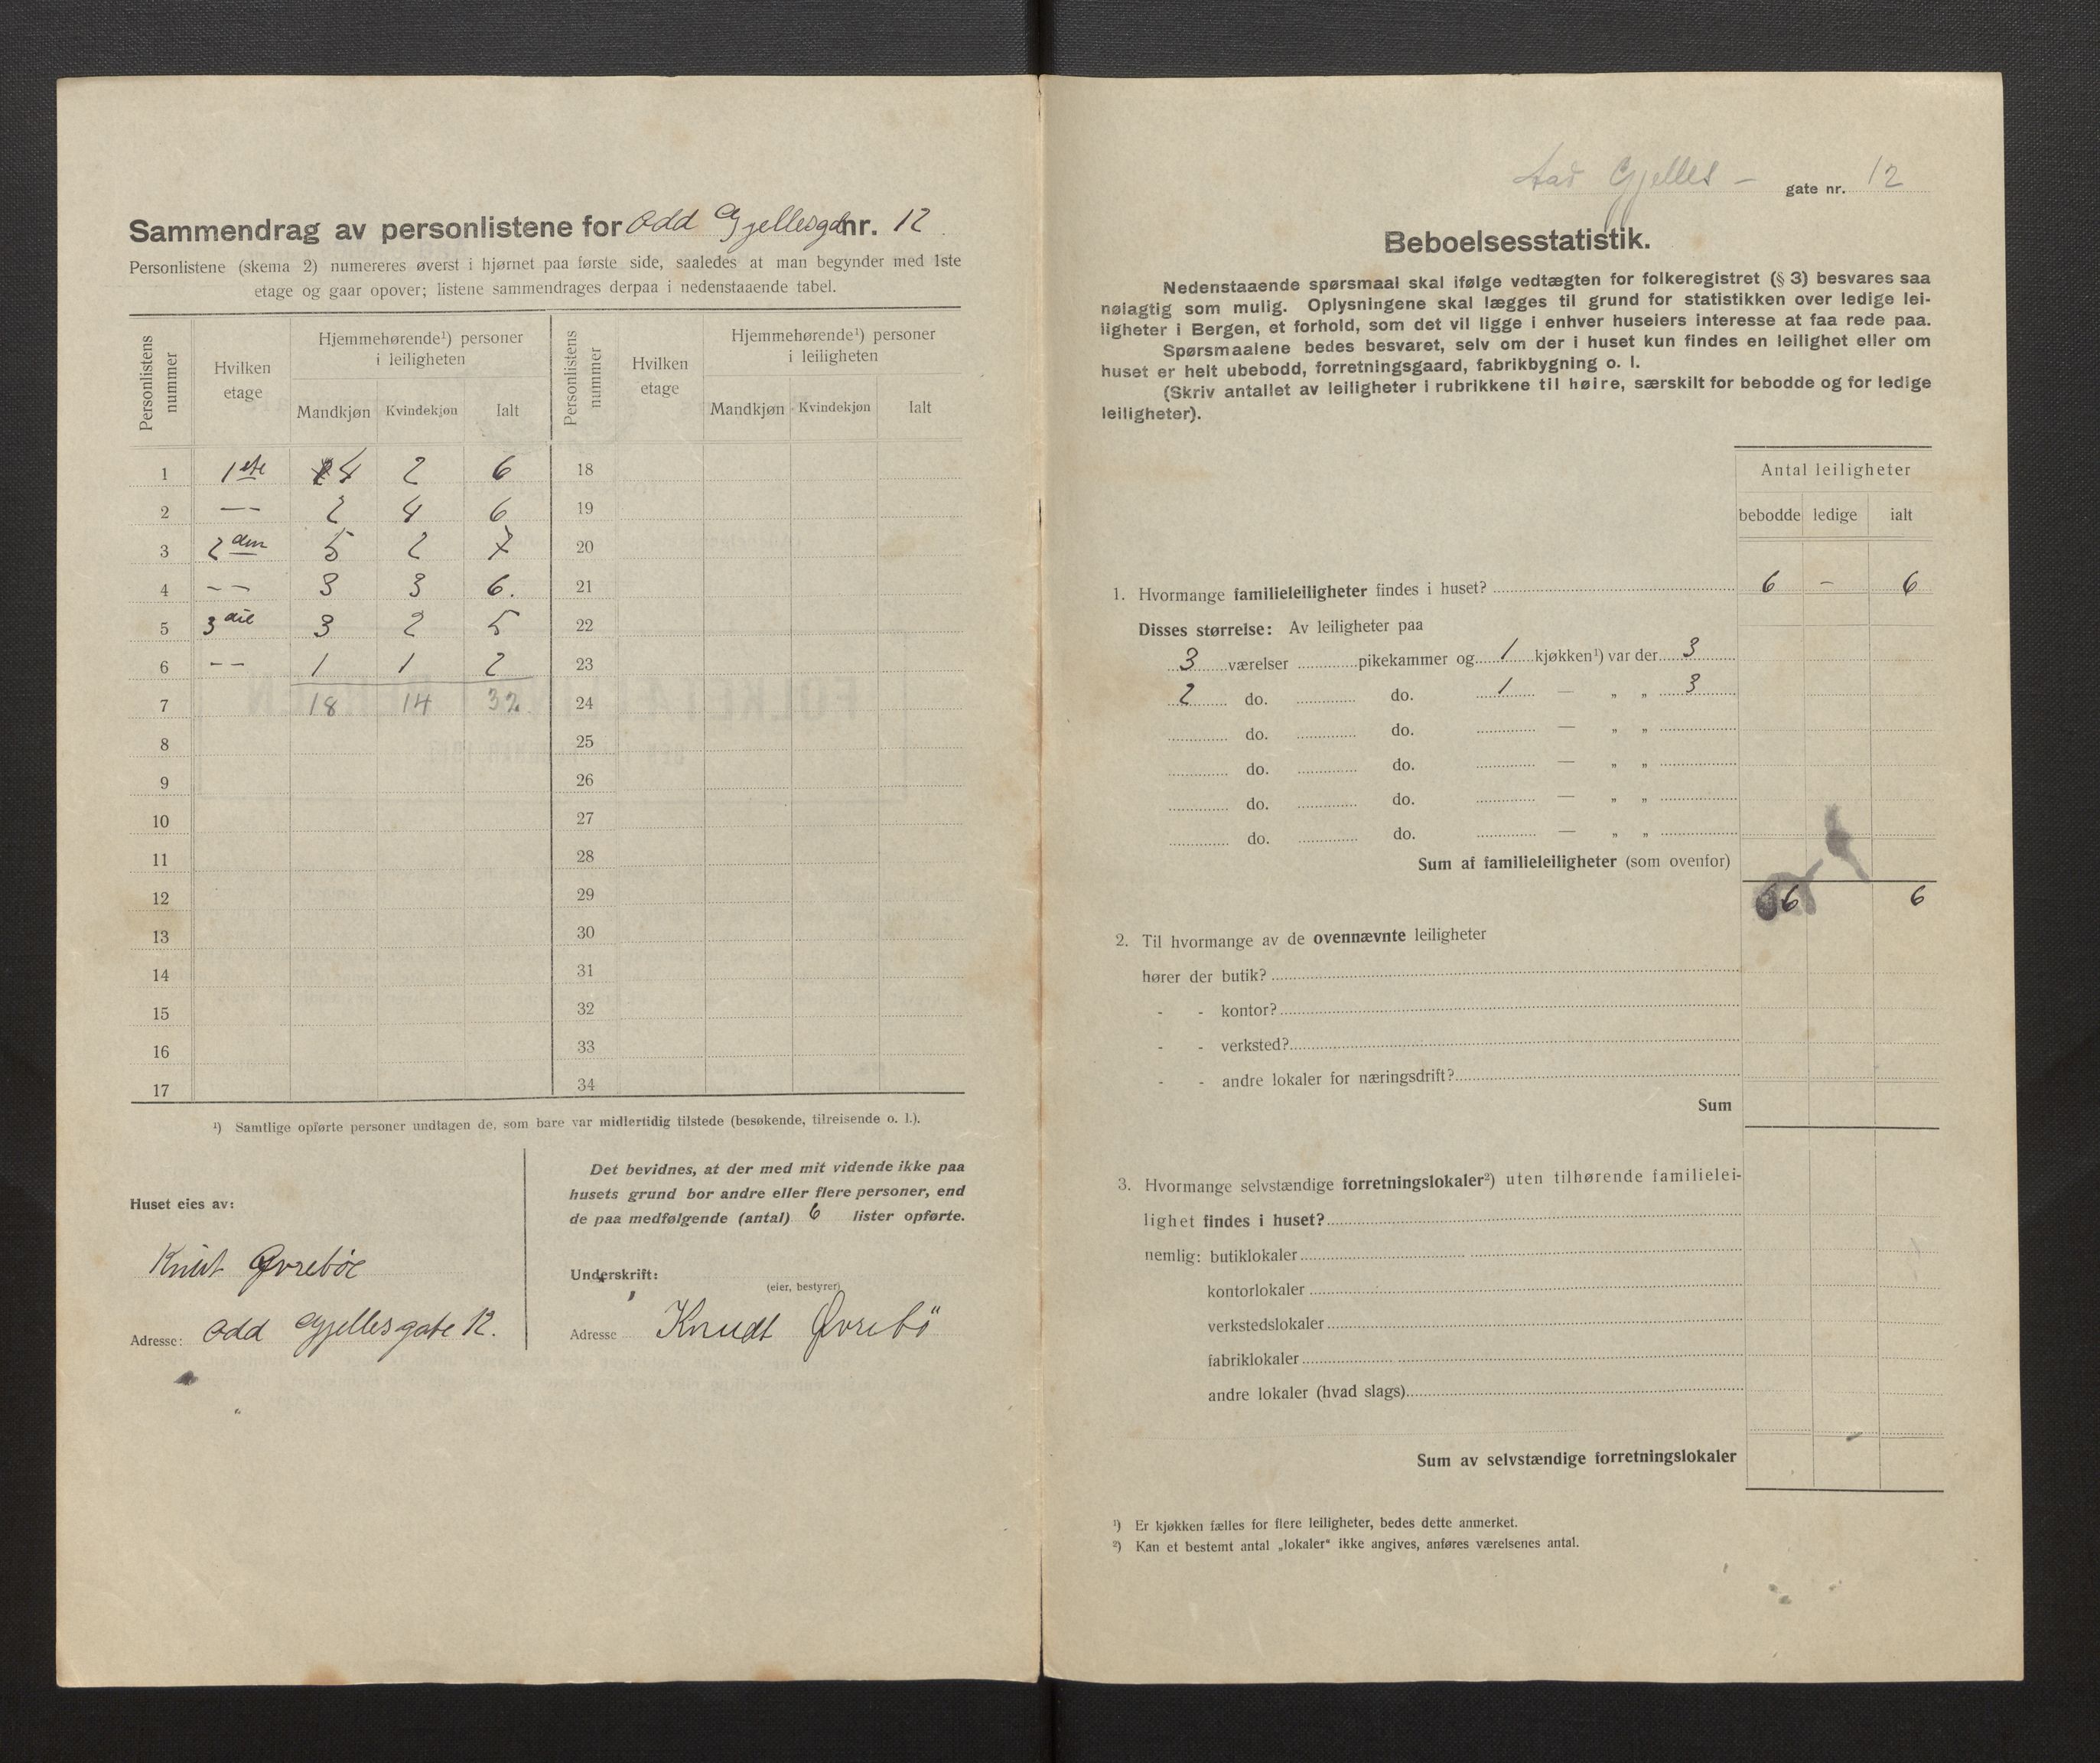 Sammendrag av personlistene for Odd Gjellesga nr. 12
Personlistene (skema 2) numereres øverst i hjørnet paa første side, saaledes at man begynder med 1ste
etage og gaar opover; listene sammendrages derpaa i nedenstaaende tabel.
Personlistens nummer Hvilken etage Hjemmehørende¹) personer i leiligheten Personlistens nummer Hvilken etage Hjemmehørende¹) personer i leiligheten
Mandkjøn Kvindekjøn Ialt Mandkjøn Kvindekjøn Ialt
1 1ste 4 2 6 18
2 — — 2 4 6 19
3 2den 5 2 7 20
4 — — 3 3 6. 21
5 3die 3 2 5 22
6 — — 1 1 2 23
7 18 14 32 24
8 25
9 26
10 27
11 28
12 29
13 30
14 31
15 32
16 33
17 34
¹) Samtlige opførte personer undtagen de, som bare var midlertidig tilstede (besøkende, tilreisende o. l.).
Huset eies av:
Knut Øvrebøe
Adresse: Odd Gjellesgate 12.
Det bevidnes, at der med mit vidende ikke paa
husets grund bor andre eller flere personer, end
de paa medfølgende (antal) 6 lister opførte.
Underskrift:
(eier, bestyrer)
Adresse Knudt Øvrebö
Aad Gjelles – gate nr. 12
Beboelsesstatistik.
Nedenstaaende spørsmaal skal ifølge vedtægten for folkeregistret (§ 3) besvares saa
nøiagtig som mulig. Oplysningene skal lægges til grund for statistikken over ledige lei-
ligheter i Bergen, et forhold, som det vil ligge i enhver huseiers interesse at faa rede paa.
Spørsmaalene bedes besvaret, selv om der i huset kun findes en leilighet eller om
huset er helt ubebodd, forretningsgaard, fabrikbygning o. l.
(Skriv antallet av leiligheter i rubrikkene til høire, særskilt for bebodde og for ledige
leiligheter).
Antal leiligheter
bebodde ledige ialt
1. Hvormange familieleiligheter findes i huset? 6 – 6
Disses størrelse: Av leiligheter paa
3 værelser pikekammer og 1 kjøkken¹) var der 3
2 do. do. 1 — „ „ 3
do. do. — „ „
do. do. — „ „
do. do. — „ „
do. do. — „ „
Sum af familieleiligheter (som ovenfor)
6 6
2. Til hvormange av de ovennævnte leiligheter
hører der butik?
- - kontor?
- - verksted?
- - andre lokaler for næringsdrift?
Sum
3. Hvormange selvstændige forretningslokaler²) uten tilhørende familielei-
lighet findes i huset?
nemlig: butiklokaler
kontorlokaler
verkstedslokaler
fabriklokaler
andre lokaler (hvad slags)
Sum av selvstændige forretningslokaler
¹) Er kjøkken fælles for flere leiligheter, bedes dette anmerket.
²) Kan et bestemt antal „lokaler“ ikke angives, anføres værelsenes antal.